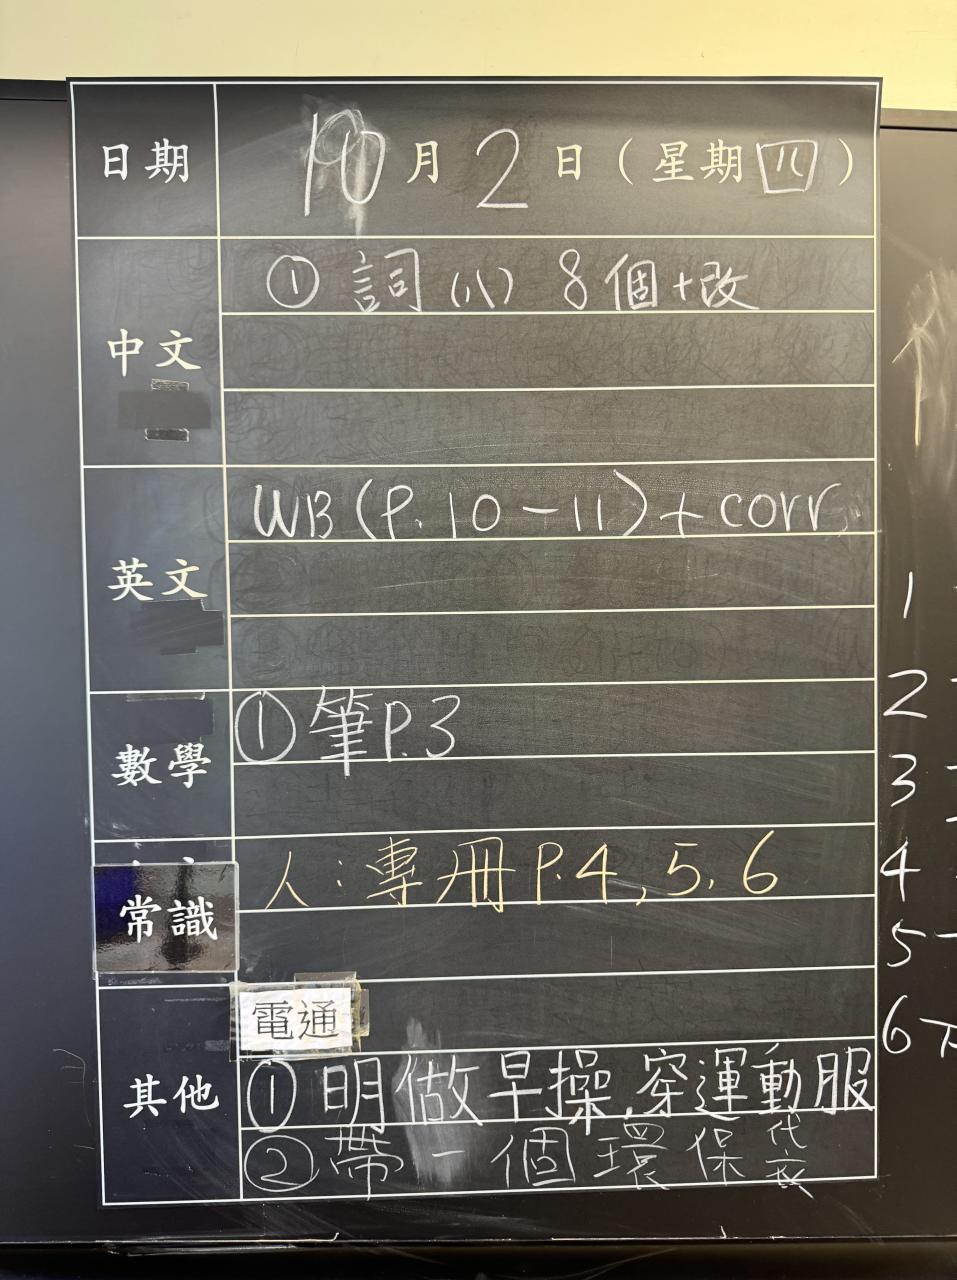 日期 10月2日(星期四)
中文
①詞(八) 8個+改
英文
WB(P.10-11)+corr.
數學
①筆P.3
常識
人:專冊P.4,5,6
其他
電通
①明做早操,穿運動服
②帶一個環保代衣
1
2
3
4
5
6